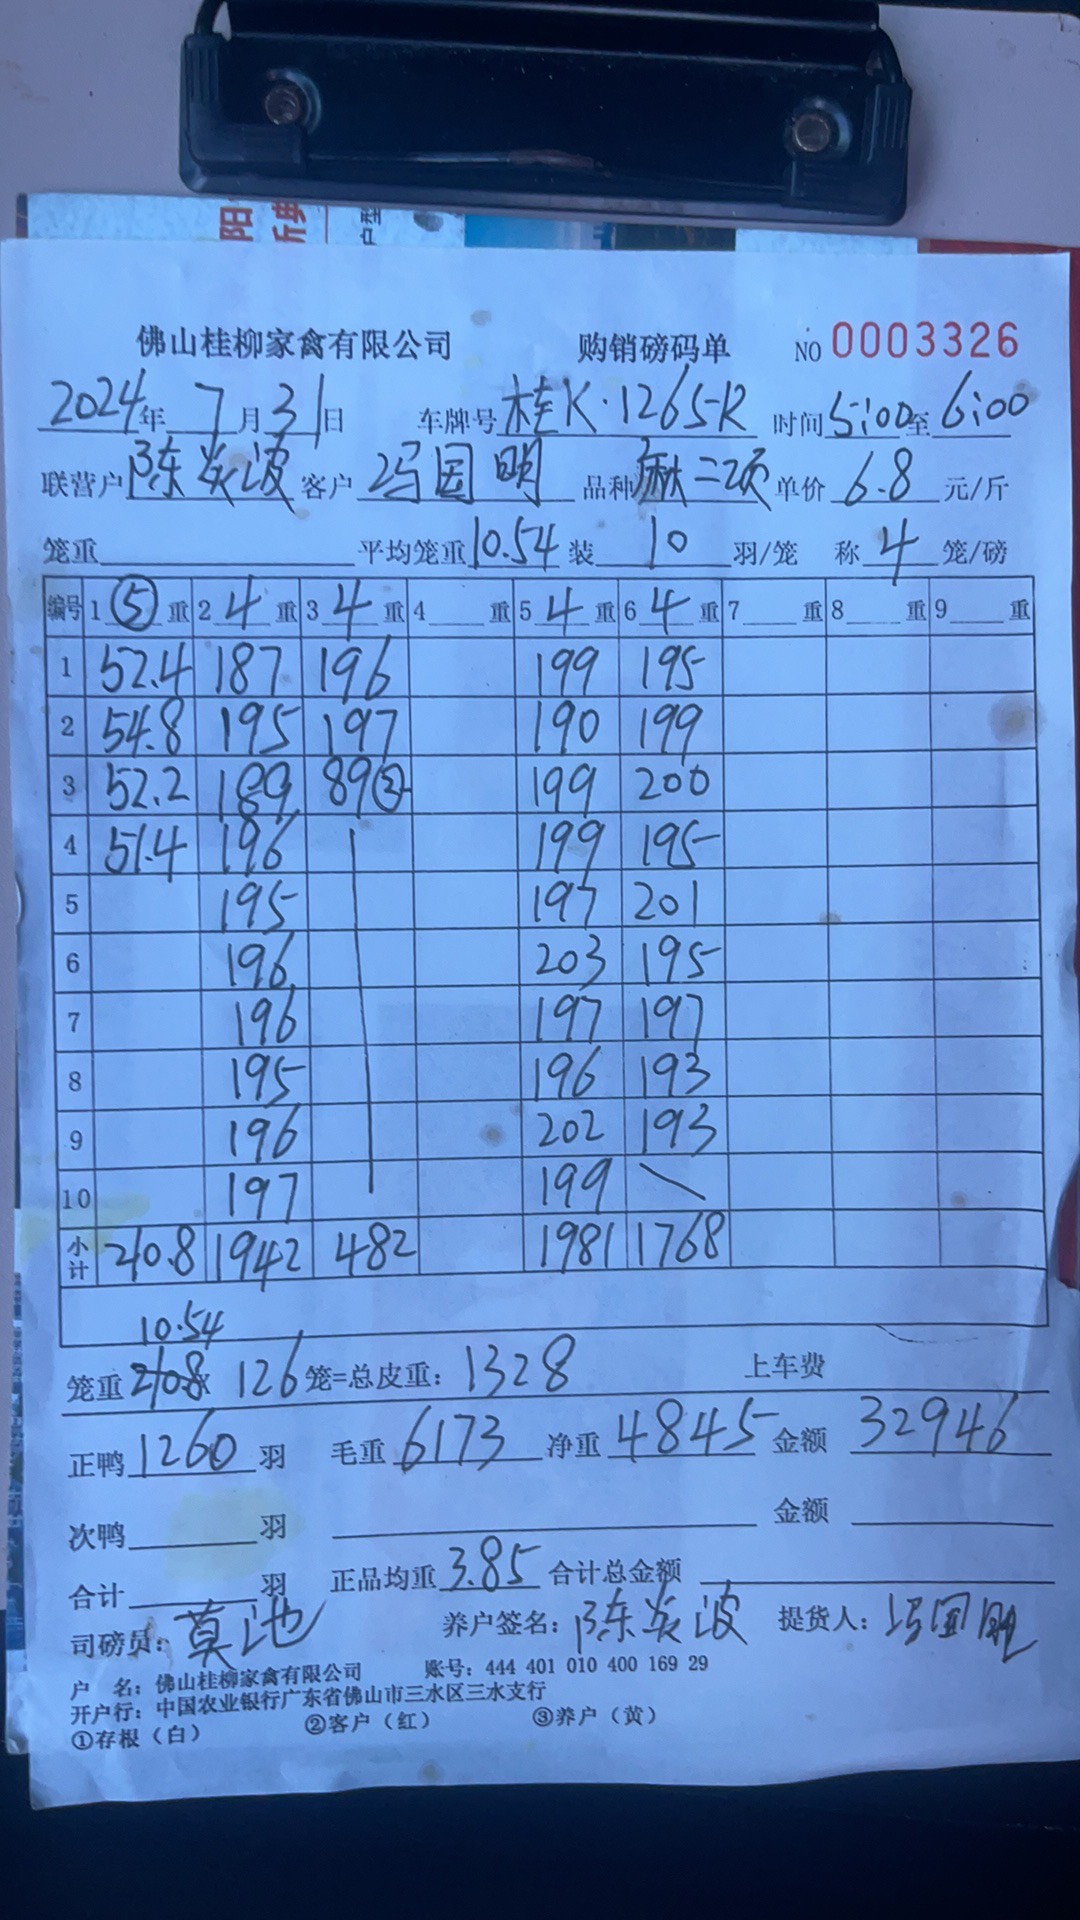 佛山桂柳家禽有限公司 购销磅码单 NO 0003326
2024年 7月31日 车牌号 桂K·1265R 时间 5:00至 6:00
联营户 陈炎波 客户 冯国明 品种 二项 单价 6.8 元/斤
笼重 平均笼重 10.54 装 10 羽/笼 称 4 笼/磅
编号 1 ⑤ 重 2 4 重 3 4 重 4 重 5 4 重 6 4 重 7 重 8 重 9 重
1 52.4 187 196 199 195
2 54.8 195 197 190 199
3 52.2 189 89② 199 200
4 51.4 196 199 195
5 195 197 201
6 196 203 195
7 196 197 197
8 195 196 193
9 196 202 193
10 197 199
小计 210.8 1942 482 1981 1768
10.54
笼重 210.8x 126 笼=总皮重: 1328 上车费
正鸭 1260 羽 毛重 6173 净重 4845 金额 32946
次鸭 羽 金额
合计 羽 正品均重 3.85 合计总金额
司磅员: 莫池 养户签名: 陈炎波 提货人: 冯国明
户 名: 佛山桂柳家禽有限公司 账号: 444 401 010 400 169 29
开户行: 中国农业银行广东省佛山市三水区三水支行
①存根（白） ②客户（红） ③养户（黄）